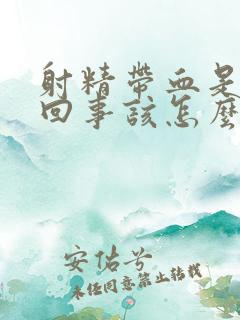 射精带血是
回事该怎么
安佑兮
未经同意禁止转载